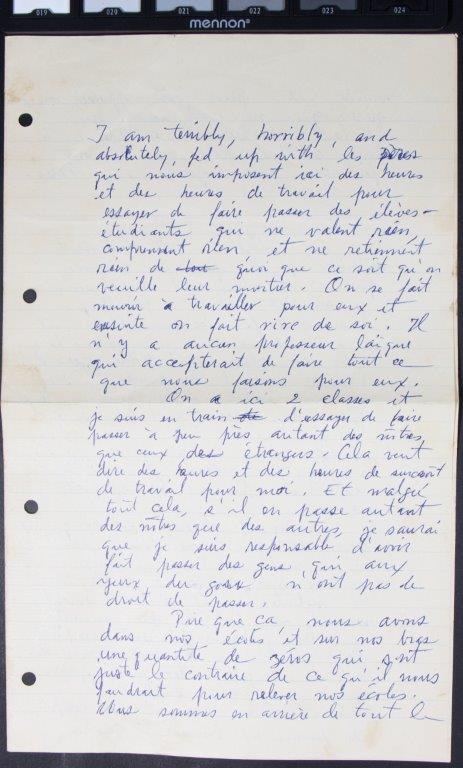 019 020 021 022 023 024
mennon®
I am terribly, horribly, and
absolutely, fed up with les
qui nous imposent ici des heures
et des heures de travail pour
essayer de faire passer des élèves-
étudiants qui ne valent rien,
comprennent rien et ne retiennent
rien, de tout quoi que ce soit qu'on
veuille leur montrer. On se fait
mourir à travailler pour eux et
ensuite on fait rire de soi. Il
n'y a aucun professeur laïque
qui accepterait de faire tout ce
que nous faisons pour eux.
On a ici 2 classes et
je suis en train de d'essayer de faire
passer à peu près autant des nôtres
que ceux des étrangers. Cela veut
dire des heures et des heures de surcroit
de travail pour moi. Et malgré
tout cela, s'il en passe autant
des nôtres que des autres, je saurai
que je suis responsable d'avoir
fait passer des gens, qui, aux
yeux du n'ont pas de
droit de passer.
Pire que ça, nous avons
dans nos écoles et sur nos bras
une quantité de zéros qui sont
juste le contraire de ce qu'il nous
faudrait pour relever nos écoles.
Nous sommes en arrière de tout le